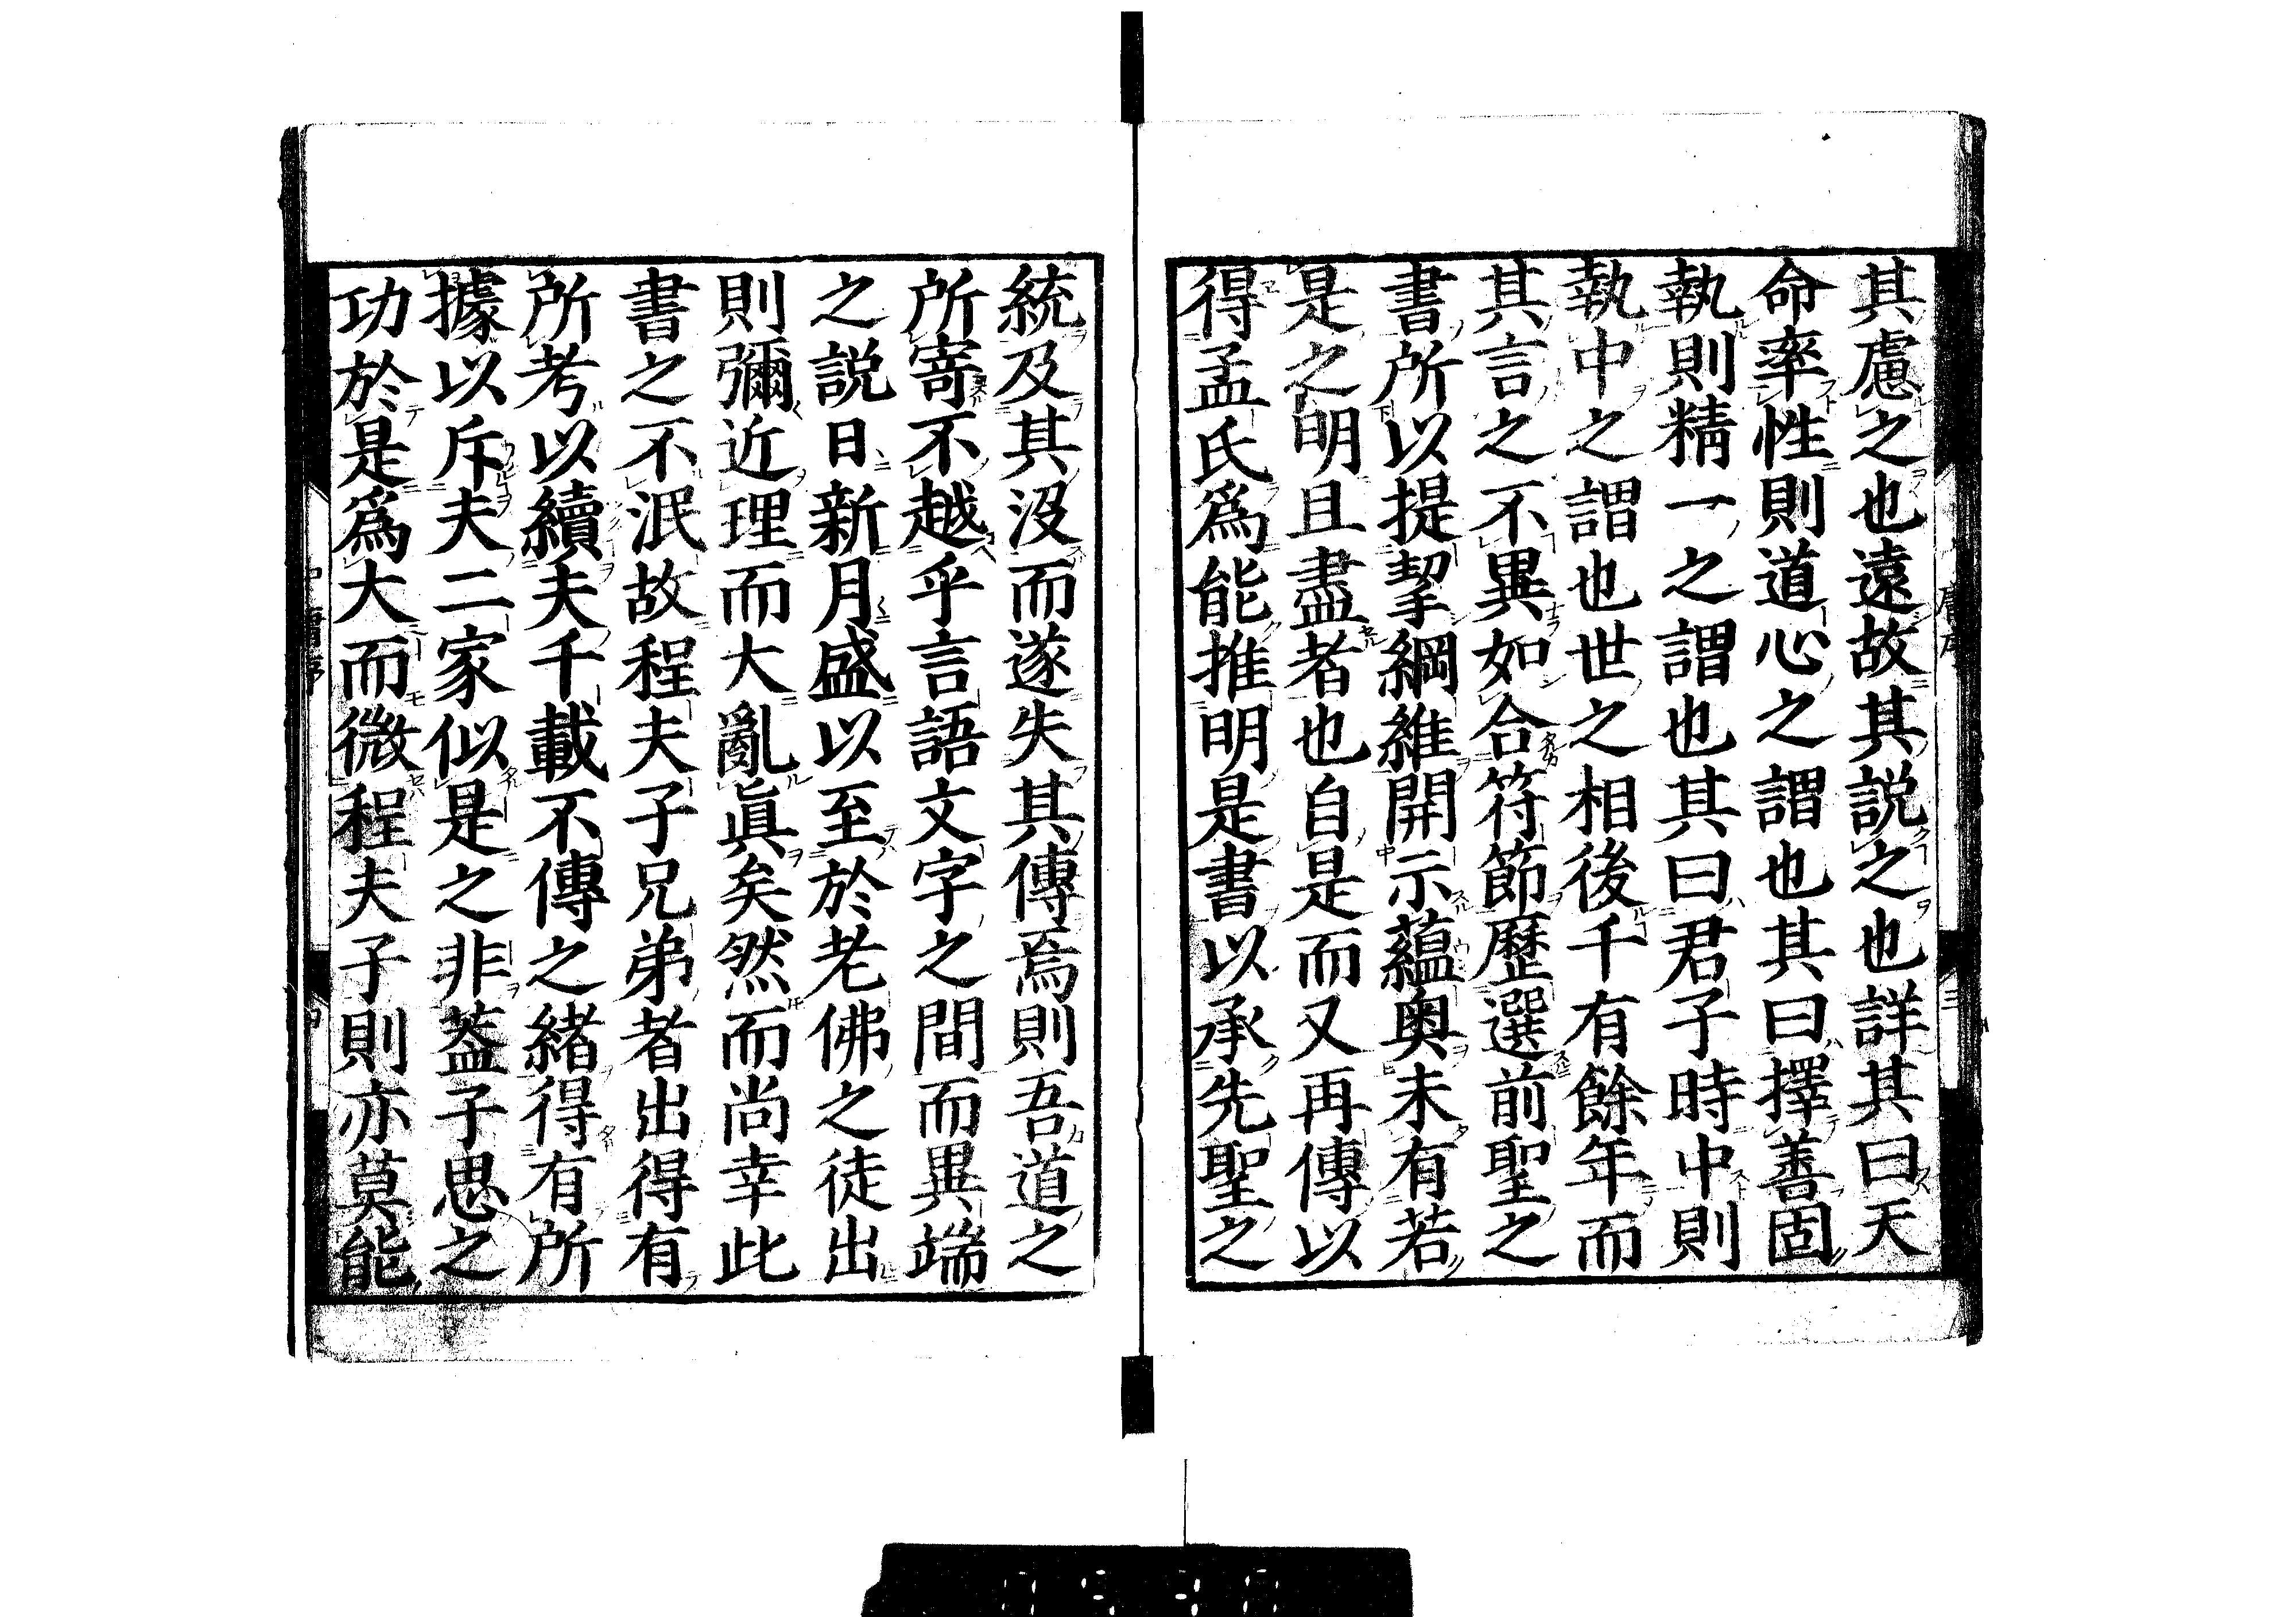 其慮之也遠故其説之也詳其曰天
命率性則道心之謂也其曰擇善固
執則精一之謂也其曰君子時中則
執中之謂也世之相後千有餘年而
其言之不異如合符節歴選前聖之
書所以提挈綱維開示蘊奥未有若
是之明且盡者也自是而又再傳以
得孟氏爲能推明是書以承先聖之
統及其沒而遂失其傳焉則吾道之
所寄不越乎言語文字之間而異端
之説日新月盛以至於老佛之徒出
則彌近理而大亂眞矣然而尚幸此
書之不泯故程夫子兄弟者出得有
所考以續夫千載不傳之緒得有所
據以斥夫二家似是之非蓋子思之
功於是爲大而微程夫子則亦莫能